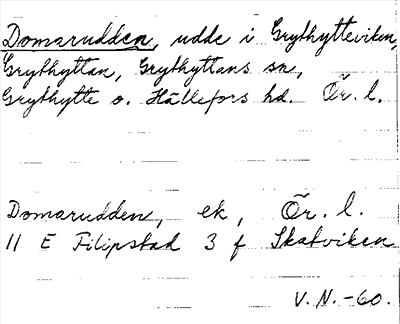 Domarudden, udde i Grythytteviken,
Grythyttan, Grythyttans sn,
Grythytte o. Hällefors hd. Ör. l.
Domarudden, ek, Ör. l.
11 E Filipstad 3 f Skatviken
V. N. -60.